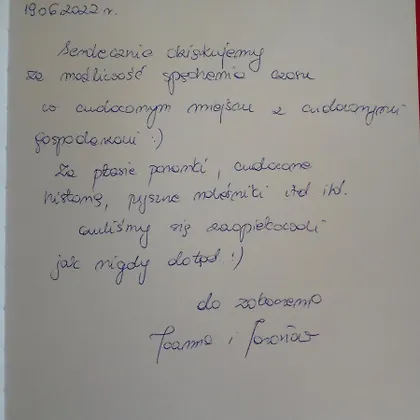 19.06.2022 r.
Serdecznie dziękujemy
za możliwość spędzenia czasu
w cudownym miejscu z cudownymi
gospodarzami :)
Za ptasie poranki, cudowne
historie, pyszne naleśniki itd itd.
czuliśmy się zaopiekowani
jak nigdy dotąd :)
do zobaczenia
Joanna i